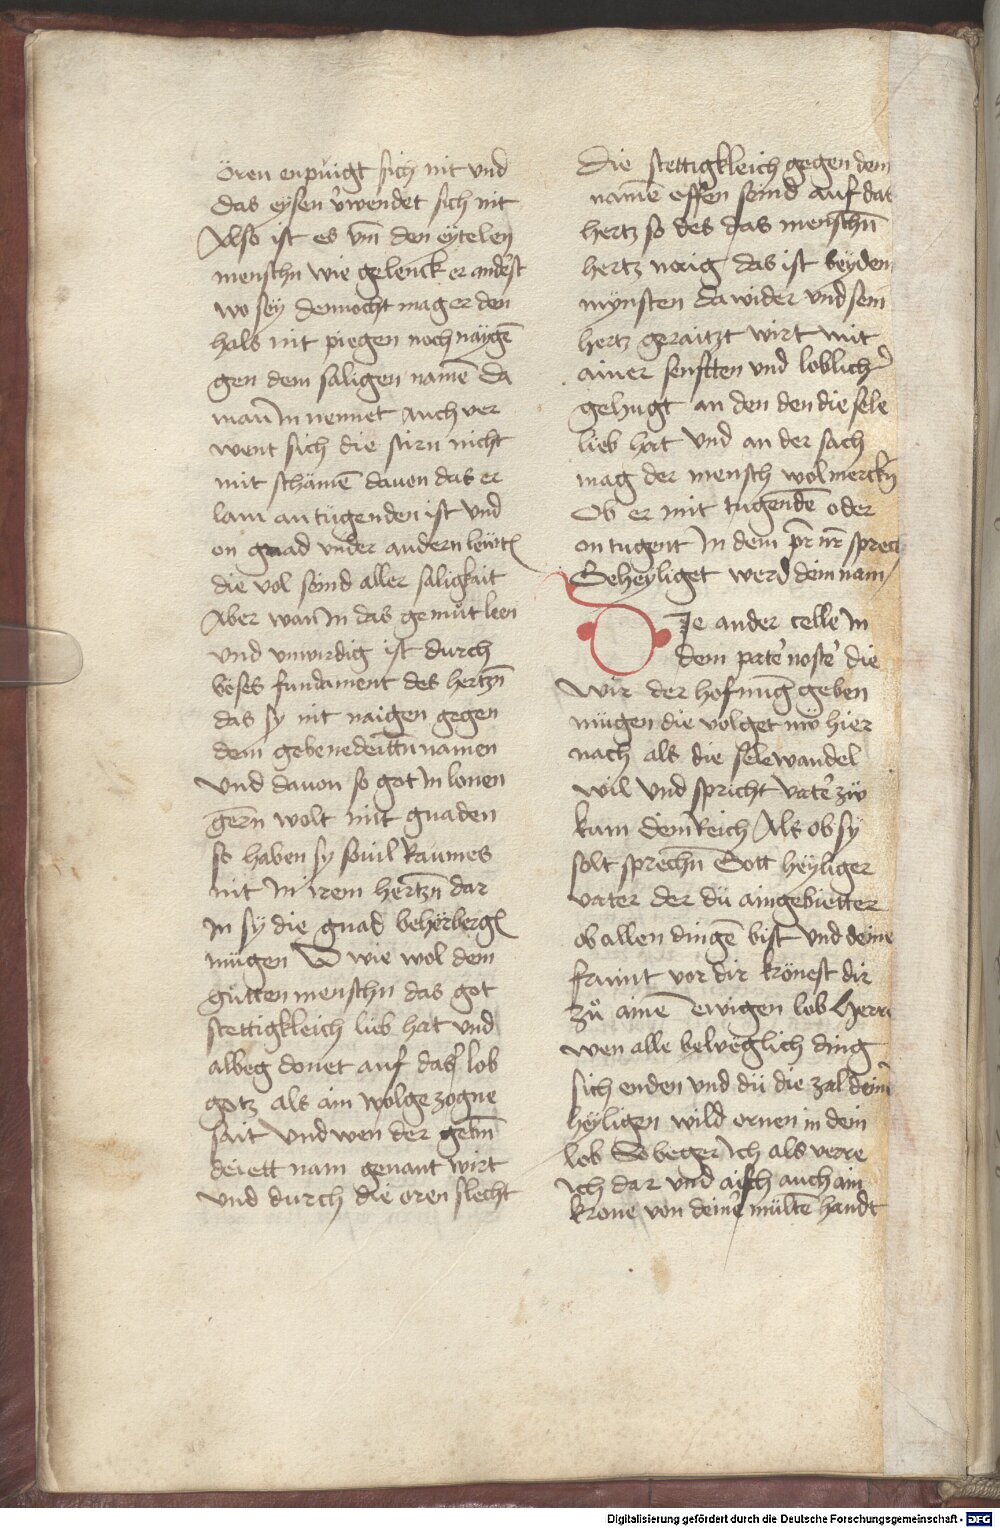 Oren enpuigt sich nit und
das eysen v̓wendet sich nit
Also ist es vm̄ den eytelen
menschn wie gelenck er anderst
wo sey dennocht mag er den
hals nit piegen noch naygē
gen dem saligen namē da
man In nennet auch ver
went sich die stirn nicht
mit schāmē dauon das er
lam an tugenden ist vnd
on gnad vnder andern lewt
die vol seind aller saligkait
Aber wan In das gemůt leen
vnd vnwirdig ist durch
böses fundament des hertzn̄
das sy nit naigen gegen
dem gebenedeittn̄ namen
vnd dauon so got In lonen
gern wolt mit gnaden
so haben sy souil raumes
nit In irem hertzn̄ dar
In sy die gnad behörberg
mügen O wie wol dem
gůtten menschn das got
stettigkleich lieb hat vnd
albeg donet auf das lob
gotz als ain wolgezogne
sait Vnd wen der gebn̄
deiett nam genant wirt
vnd durch die oren slecht
Die stettigkleich gegen dem
namē offen seind auf das
hertz so des das menschn̄
hertz norig das ist beyden
mynsten da wider vnd sein
hertz geraitzt wirt mit
ainer senftten vnd loblich
gehugt an den den die sele
lieb hat vnd an der sach
mag der mensch wol mercken
Ob er mit tugendē oder
on tugent In dem pr̄ nr̄ sprech
Geheyliget werd dein nam
Die ander celle In
dem pate noste die
wir der hofnūg geben
mügen die volget nw hier
nach als die sele wandel
wil vnd spricht vate zw
kum dein Reich Als ob sy
solt sprechn̄ Gott heyliger
vater der dü aingebietter
ob allen dingē bist vnd deine
fraint vor dir krönest dir
zů ainē ewigen lob Herr
wen alle beweglich ding
sich enden vnd dü die zal dein
heyligen wild ornen in dein
lob So beger ich als verre
ich dar vnd aisch auch ain
krone von deine miltē handt
Digitalisierung gefördert durch die Deutsche Forschungsgemeinschaft - DFG